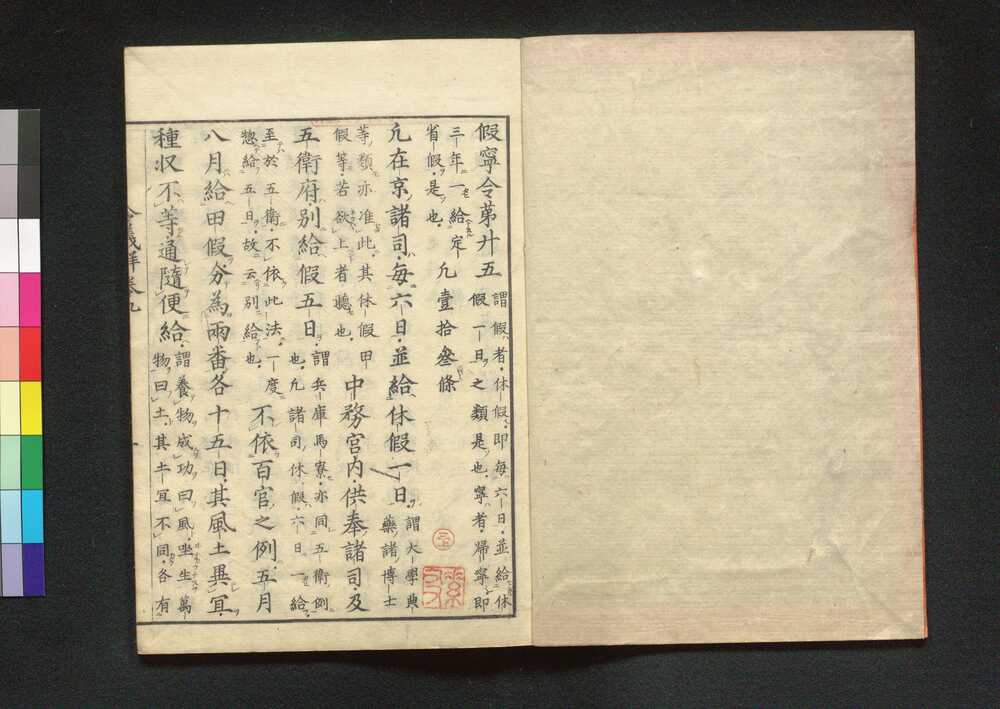 假寧令第廿五 謂假者休假即每六日並給休
假一日之類是也寧者歸寧即
三年一給定
省假是也 凡壹拾叄條
凡在京諸司每六日並給休假一日 謂大學典
藥諸博士
等類亦准此其休假甲
假等若欲上者聽也 中務宮内供奉諸司及
五衛府別給假五日 謂兵庫馬寮亦同五衛例
也凡諸司休假六日一給
至於五衛不依此法一度
惣給五日故云別給也 不依百官之例五月
八月給田假分為兩番各十五日其風土異冝
種収不等通隨便給 謂養物成功曰風坐生萬
物曰土其土冝不同各有
令義解卷九